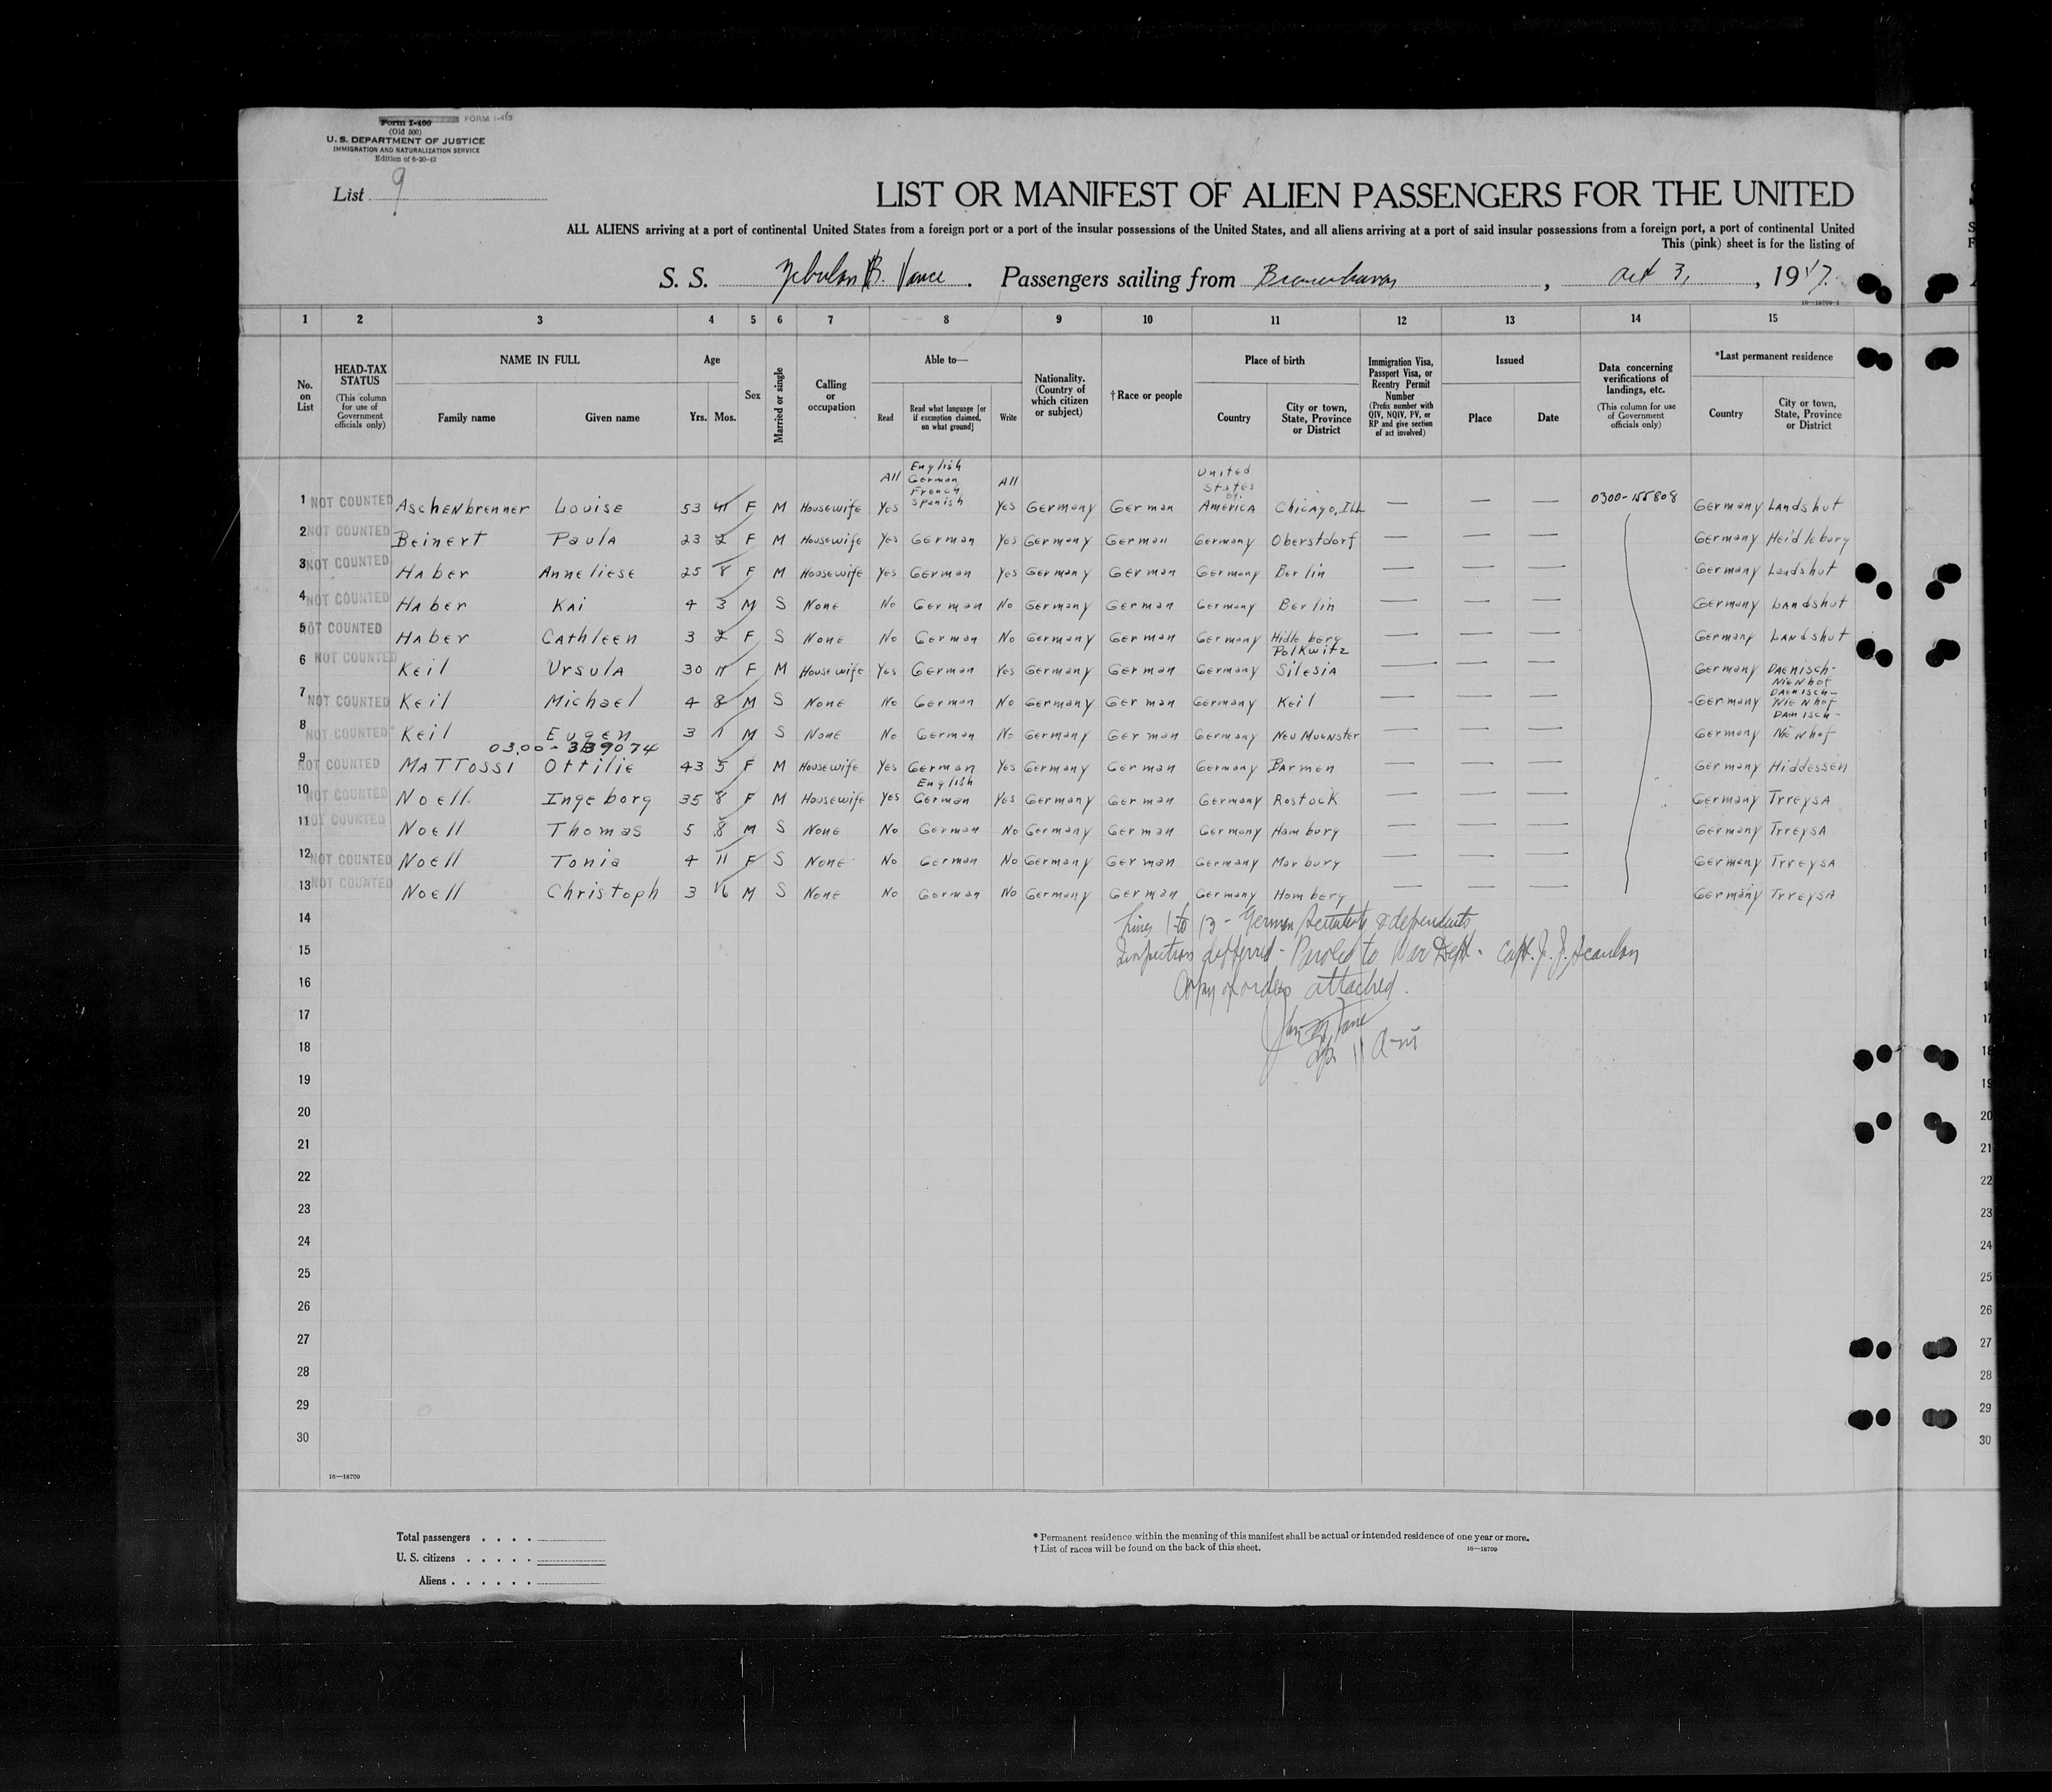 Form I-400 FORM I-415
(Old 500)
U. S. DEPARTMENT OF JUSTICE
IMMIGRATION AND NATURALIZATION SERVICE
Edition of 6-20-42
List 9
LIST OR MANIFEST OF ALIEN PASSENGERS FOR THE UNITED
ALL ALIENS arriving at a port of continental United States from a foreign port or a port of the insular possessions of the United States, and all aliens arriving at a port of said insular possessions from a foreign port, a port of continental United
This (pink) sheet is for the listing of
S. S. Zebulon B. Vance. Passengers sailing from Bremerhaven, Oct 3, 1947.
16—18709-1
1 2 3 4 5 6 7 8 9 10 11 12 13 14 15
No. on List
HEAD-TAX STATUS (This column for use of Government officials only)
NAME IN FULL Family name Given name
Age Yrs. Mos.
Sex
Married or single
Calling or occupation
Able to— Read Read what language [or if exemption claimed, on what ground] Write
Nationality. (Country of which citizen or subject)
†Race or people
Place of birth Country City or town, State, Province or District
Immigration Visa, Passport Visa, or Reentry Permit Number (Prefix number with QIV, NQIV, PV, or RP and give section of act involved)
Issued Place Date
Data concerning verifications of landings, etc. (This column for use of Government officials only)
*Last permanent residence Country City or town, State, Province or District
1 NOT COUNTED Aschenbrenner Louise 53 F M Housewife All Yes English German French Spanish All Yes Germany German United States of America Chicago, Ill — — — 0300-155808 Germany Landshut
2 NOT COUNTED Beinert Paula 23 2 F M Housewife Yes German Yes Germany German Germany Oberstdorf — — — Germany Heidleburg
3 NOT COUNTED Haber Anneliese 25 8 F M Housewife Yes German Yes Germany German Germany Berlin — — — Germany Landshut
4 NOT COUNTED Haber Kai 4 3 M S None No German No Germany German Germany Berlin — — — Germany Landshut
5 NOT COUNTED Haber Cathleen 3 2 F S None No German No Germany German Germany Hidleberg — — — Germany Landshut
6 NOT COUNTED Keil Ursula 30 11 F M Housewife Yes German Yes Germany German Germany Polkwitz Silesia — — — Germany Daenisch-Nienhof
7 NOT COUNTED Keil Michael 4 8 M S None No German No Germany German Germany Keil — — — Germany Daenisch-Nienhof
8 NOT COUNTED Keil Eugen 3 1 M S None No German No Germany German Germany Neu Muenster — — — Germany Danisch-Neinhof
0300-339074
9 NOT COUNTED Mattossi Ottilie 43 5 F M Housewife Yes German Yes Germany German Germany Barmen — — — Germany Hiddessen
10 NOT COUNTED Noell Ingeborg 35 8 F M Housewife Yes English German Yes Germany German Germany Rostock — — — Germany Trreysa
11 NOT COUNTED Noell Thomas 5 8 M S None No German No Germany German Germany Hamburg — — — Germany Trreysa
12 NOT COUNTED Noell Tonia 4 11 F S None No German No Germany German Germany Marburg — — — Germany Trreysa
13 NOT COUNTED Noell Christoph 3 6 M S None No German No Germany German Germany Homberg — — — Germany Trreysa
14 Lines 1 to 13 - German Scientists & dependents
15 Inspection deferred - Paroled to War Dept. Capt. J. J. Scanlon
16 Copy of orders attached.
17
18
19
20
21
22
23
24
25
26
27
28
29
30
16—18709
Total passengers . . . .
U. S. citizens . . . . .
Aliens . . . . . .
* Permanent residence within the meaning of this manifest shall be actual or intended residence of one year or more.
† List of races will be found on the back of this sheet.
16—18709